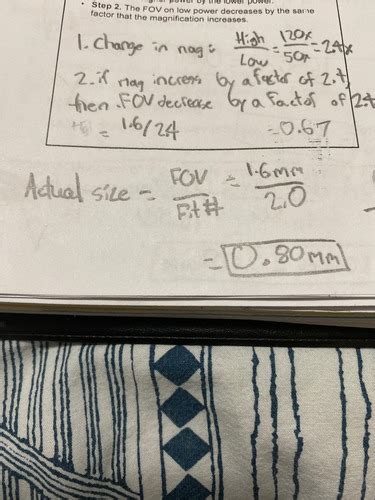 power by the lower power.
• Step 2. The FOV on low power decreases by the same
factor that the magnification increases.
1. Change in mag: High/Low = 120x/50x = 2.4x
2. if mag incress by a factor of 2.4,
then FOV decrease by a factor of 2.4
= 1.6/24 = 0.67
Actual size = FOV/Fit# = 1.6mm/2.0
= 0.80mm